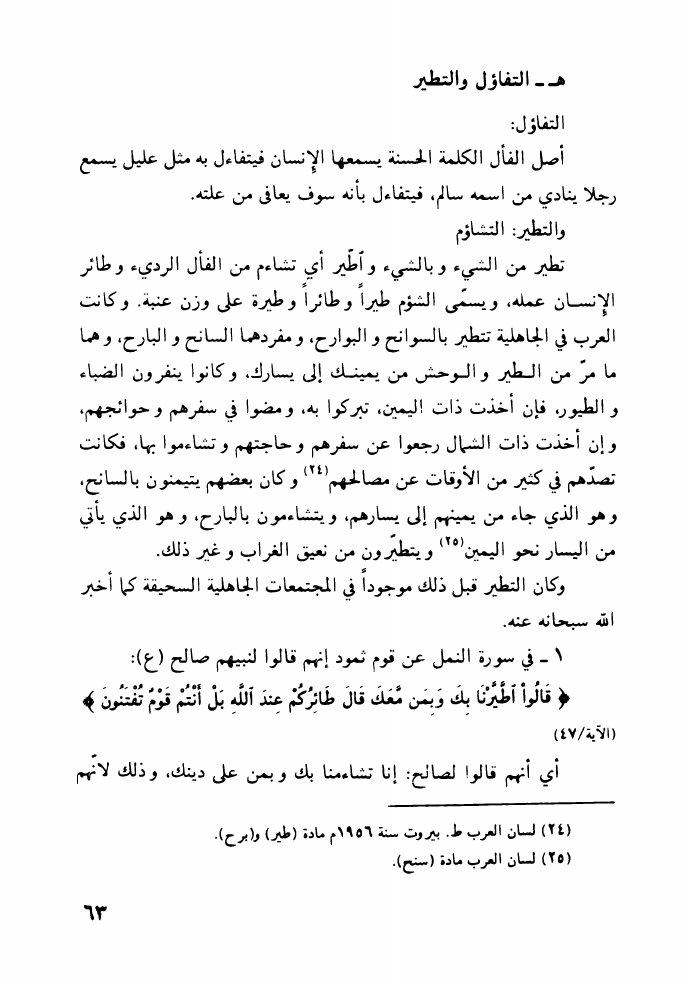 هـ ـ التفاؤل والتطير
التفاؤل:
أصل الفأل الكلمة الحسنة يسمعها الإنسان فيتفاءل به مثل عليل يسمع
رجلا ينادي من اسمه سالم، فيتفاءل بأنه سوف يعافى من علته.
والتطير: التشاؤم
تطير من الشيء و بالشيء و ٱطّير أي تشاءم من الفأل الرديء و طائر
الإنسـان عمله، ويسمّى الشؤم طيراً و طائراً و طيرة على وزن عنبة. و كانت
العرب في الجاهلية تتطير بالسوانح و البوارح، و مفردهما السانح و البارح، و هما
ما مرّ من الـطير و الـوحش من يمينـك إلى يسارك، و كانوا ينفرون الضباء
و الطيور، فإن أخذت ذات اليمين، تبركوا به، و مضوا في سفرهم و حوائجهم،
و إن أخذت ذات الشمال رجعوا عن سفرهم و حاجتهم و تشاءموا بها، فكانت
تصدّهم في كثير من الأوقات عن مصالحهم(٢٤) و كان بعضهم يتيمنون بالسانح،
و هو الذي جاء من يمينهم إلى يسارهم، و يتشاءمون بالبارح، و هو الذي يأتي
من اليسار نحو اليمين(٢٥) و يتطيّرون من نعيق الغراب و غير ذلك.
وكان التطير قبل ذلك موجوداً في المجتمعات الجاهلية السحيقة كما أخبر
الله سبحانه عنه.
١ ـ في سورة النمل عن قوم ثمود إنهم قالوا لنبيهم صالح (ع):
﴿ قَالُواْ ٱطَّيَّرْنَا بِكَ وَبِمَن مَّعَكَ قَالَ طَائِرُكُمْ عِندَ اللَّهِ بَلْ أَنْتُمْ قَوْمٌ تُفْتَنُونَ ﴾
(الآية/٤٧)
أي أنهم قالوا لصالح: إنا تشاءمنا بك و بمن على دينك، و ذلك لأنّهم
(٢٤) لسان العرب ط. بيروت سنة ١٩٥٦م مادة (طير) و(برح).
(٢٥) لسان العرب مادة (سنح).
٦٣